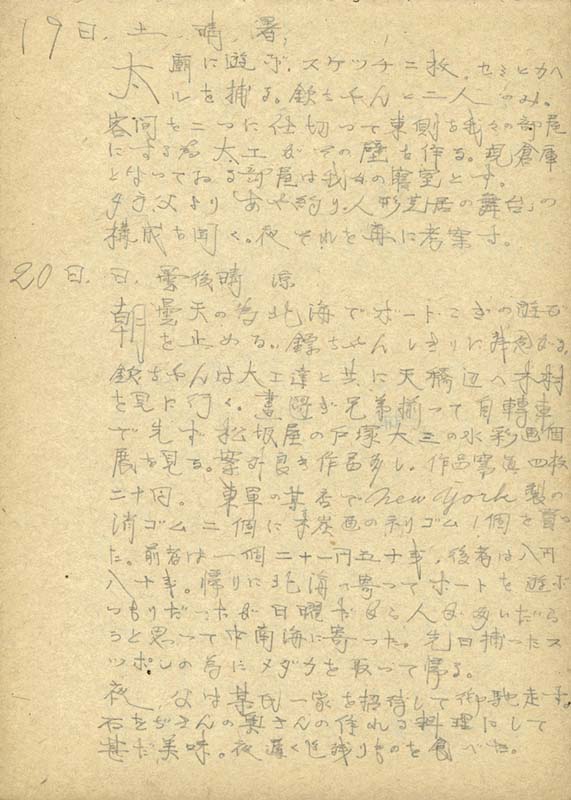 19日、土、晴、暑、
太廟に遊ぶ、スケッチ二枚。セミとカヘ
ルを捕る。欽ちゃんと二人のみ。
客間を二つに仕切って東側を我々の部屋
にする為大工がその壁を作る。現倉庫
となっておる部屋は我々の寝室とす。
夕方、父より「あやつり人形芝居の舞台」の
構成を聞く。夜それを再に考案す。
20日、日、曇後晴 涼
朝曇天の為北海でボートこぎの遊び
を止める。鐐ちゃんしきりに
欽ちゃんは大工達と共に天橋辺へ木材
を見に行く。晝過ぎ兄弟揃って自轉車
で先ず松坂屋の戸塚大三の水彩画個
展を見る。案外良き作品多し。作品寫真四枚
二十円。東單の某店でNew York製の
消ゴム二個に木炭画の ゴム1個を買っ
た。前者は一個二十一円五十銭、後者は八円
八十銭。帰りに北海へ寄ってボートを遊ぶ
つもりだったが日曜だから人が多いだら
うと思って中南海に寄った。先日捕ったス
ッポンの為にメダカを取って帰る。
夜、父は某氏一家を招待して御馳走す。
石をぢさんの奥さんの作れる料理にして
甚だ美味。夜遅く迄残りものを食べた。